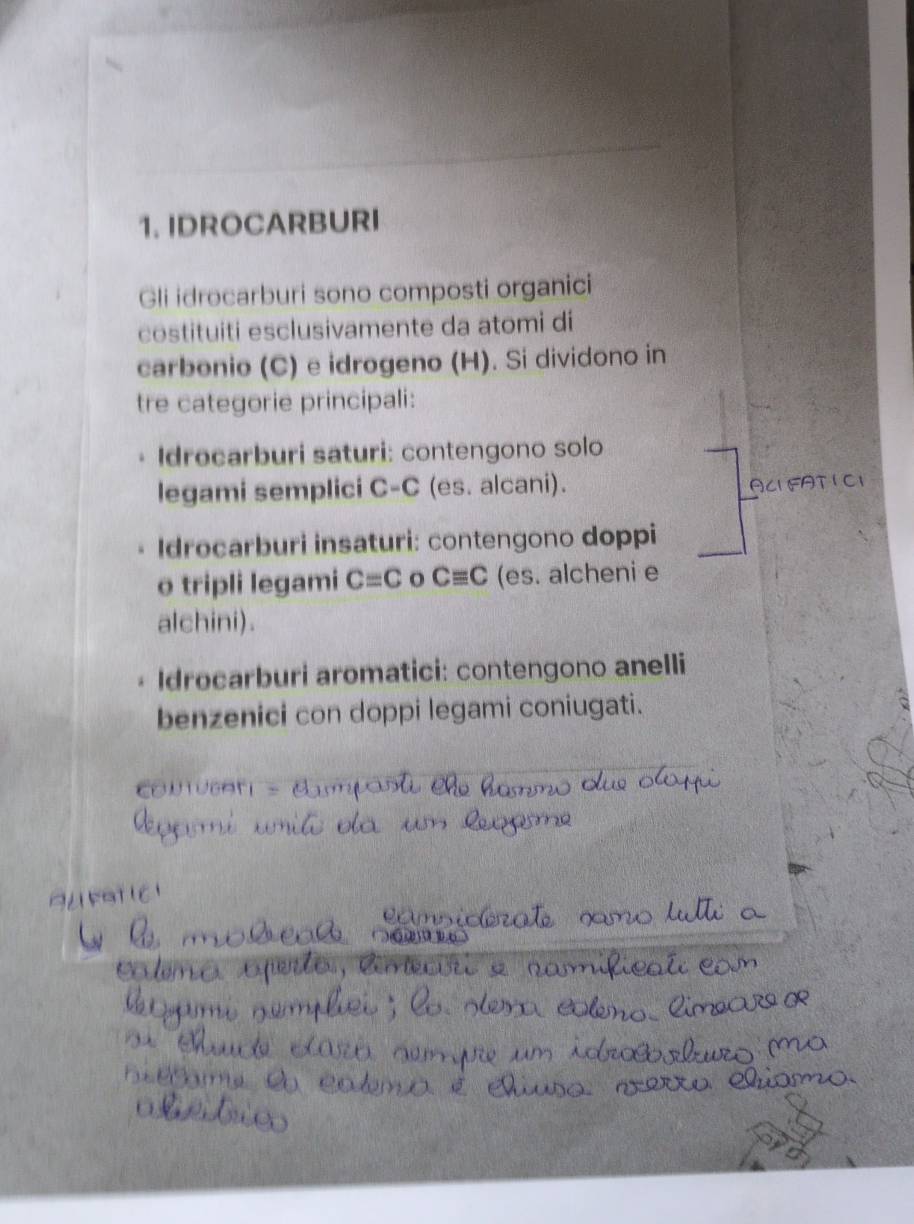 1. IDROCARBURI
Gli idrocarburi sono composti organici
costituiti esclusivamente da atomi di
carbonio (C) e idrogeno (H). Si dividono in
tre categorie principali:
• Idrocarburi saturi: contengono solo
legami semplici C-C (es. alcani).
ALIFATICI
• Idrocarburi insaturi: contengono doppi
o tripli legami C=C o C≡C (es. alcheni e
alchini).
• Idrocarburi aromatici: contengono anelli
benzenici con doppi legami coniugati.
CONIUGATI = composti che hanno due doppi
legami uniti da un legame
ALIFATICI
↳ le molecole considerate sono tutti a
catena aperta, lineari e ramificati con
legami semplici; la stessa catena lineare se
si chiude darà sempre un idrocarburo ma
siccome la catena è chiusa verrà chiamo.
aliciclico